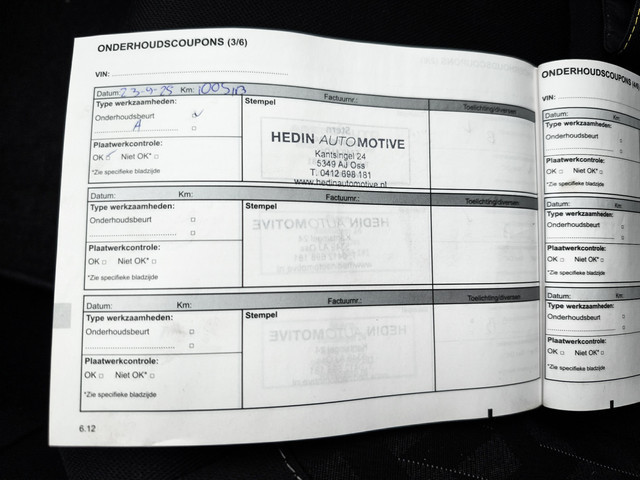 ONDERHOUDSCOUPONS (3/6)
VIN:
Datum: 23-9-25 Km: Factuurnr.: Toelichting/diversen
Type werkzaamheden: Stempel
Onderhoudsbeurt
A
Plaatwerkcontrole:
OK Niet OK*
*Zie specifieke bladzijde
HEDIN AUTOMOTIVE
Kantsingel 24
5349 AJ Oss
T. 0412 698 181
www.hedinautomotive.nl
Datum: Km: Factuurnr.: Toelichting/diversen
Type werkzaamheden: Stempel
Onderhoudsbeurt
Plaatwerkcontrole:
OK Niet OK*
*Zie specifieke bladzijde
Datum: Km: Factuurnr.: Toelichting/diversen
Type werkzaamheden: Stempel
Onderhoudsbeurt
Plaatwerkcontrole:
OK Niet OK*
*Zie specifieke bladzijde
6.12
ONDERHOUDSCOUPONS
VIN:
Datum:
Type werkzaamheden:
Onderhoudsbeurt
Plaatwerkcontrole:
OK Niet OK*
*Zie specifieke bladzijde
Datum:
Type werkzaamheden:
Onderhoudsbeurt
Plaatwerkcontrole:
OK Niet OK*
*Zie specifieke bladzijde
Datum:
Type werkzaamheden:
Onderhoudsbeurt
Plaatwerkcontrole:
OK Niet OK*
*Zie specifieke bladzijde